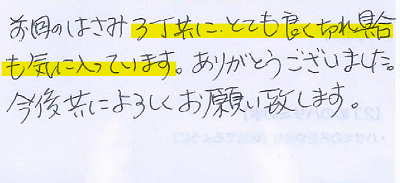 前回のはさみ3丁共に、とても良く切れ具合
も気に入っています。ありがとうございました。
今後共によろしくお願い致します。